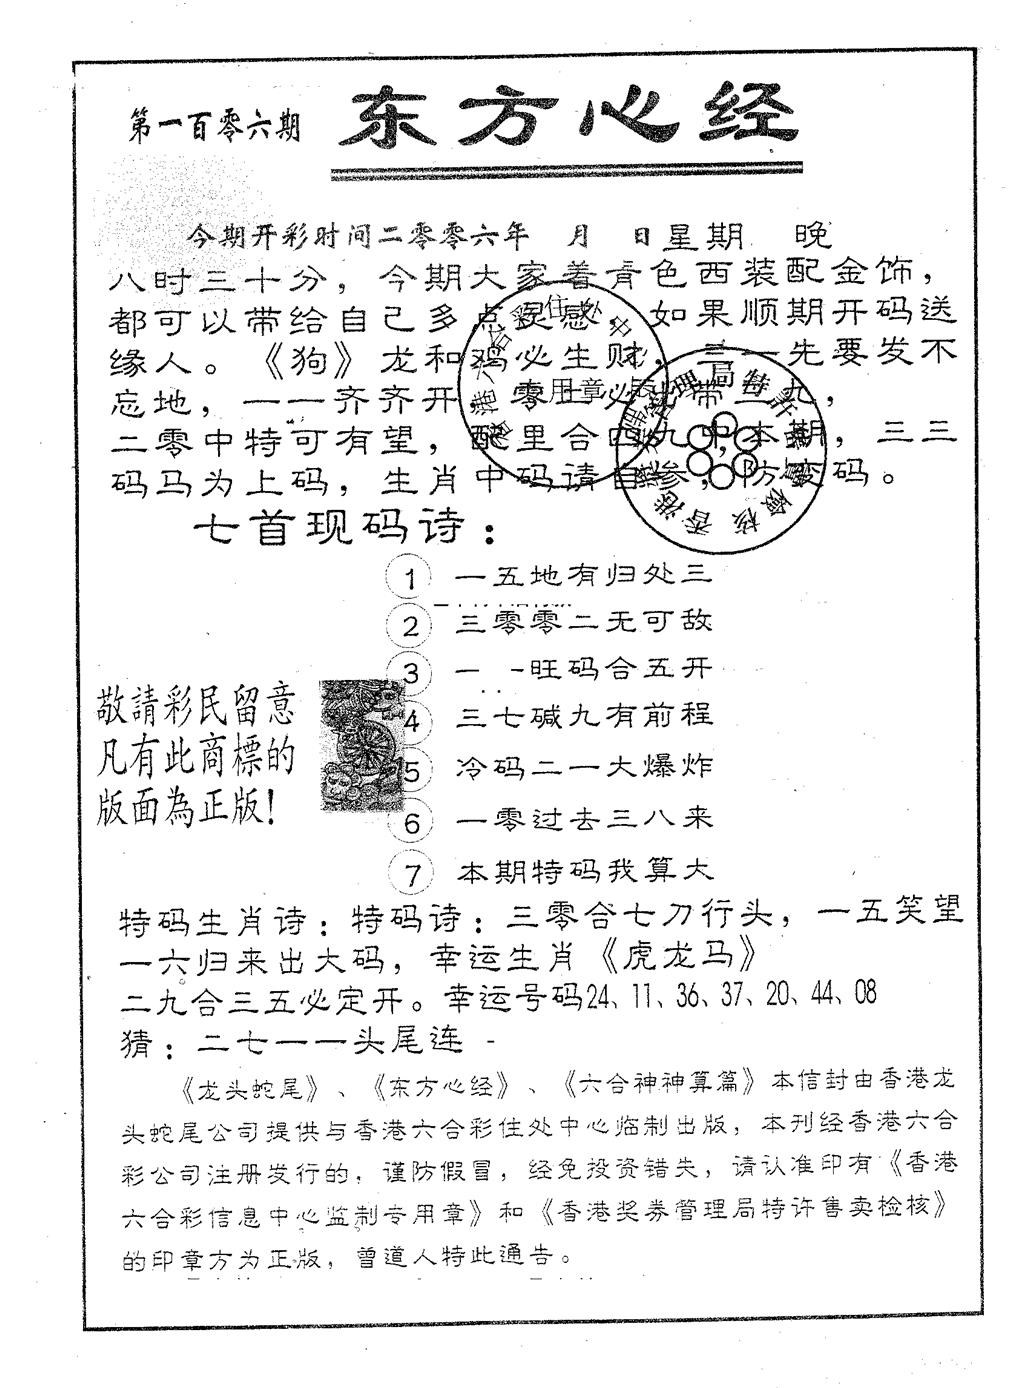 第一百零六期
东方心经
今期开彩时间二零零六年 月 日星期 晚
八时三十分，今期大家着青色西装配金饰，
都可以带给自己多点灵感，如果顺期开码送
缘人。《狗》龙和鸡必生财，三一先要发不
忘地，一一齐齐开，零二必 带三九，
二零中特可有望，配里合四九中本期，三三
码马为上码，生肖中码请自参，防变码。
七首现码诗：
1 一五地有归处三
2 三零零二无可敌
3 一 一旺码合五开
4 三七碱九有前程
5 冷码二一大爆炸
6 一零过去三八来
7 本期特码我算大
敬請彩民留意
凡有此商標的
版面為正版！
特码生肖诗：特码诗：三零合七刀行头，一五笑望
一六归来出大码，幸运生肖《虎龙马》
二九合三五必定开。幸运号码24、11、36、37、20、44、08
猜：二七一一头尾连 -
《龙头蛇尾》、《东方心经》、《六合神神算篇》本信封由香港龙
头蛇尾公司提供与香港六合彩住处中心临制出版，本刊经香港六合
彩公司注册发行的，谨防假冒，经免投资错失，请认准印有《香港
六合彩信息中心监制专用章》和《香港奖券管理局特许售卖检核》
的印章方为正版，曾道人特此通告。